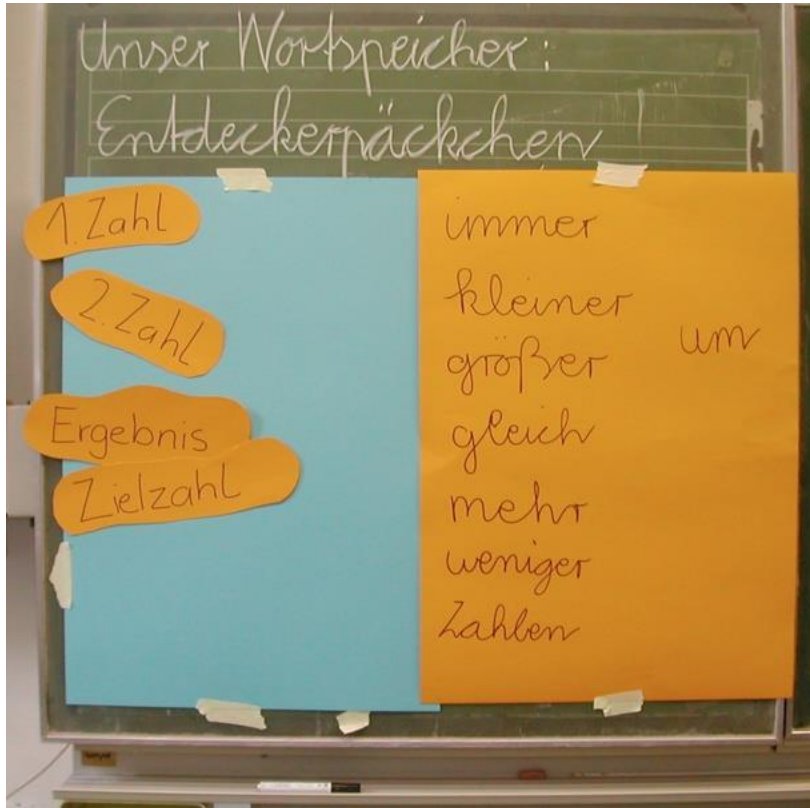 Unser Wortspeicher:
Entdeckerpäckchen
1. Zahl
2. Zahl
Ergebnis
Zielzahl
immer
kleiner
um
größer
gleich
mehr
weniger
Zahlen